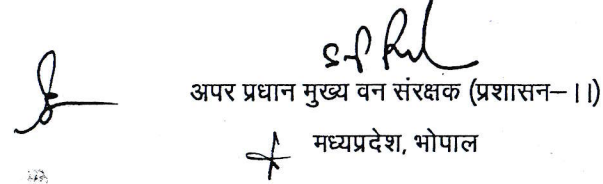 अपर प्रधान मुख्य वन संरक्षक (प्रशासन–।।)
मध्यप्रदेश, भोपाल